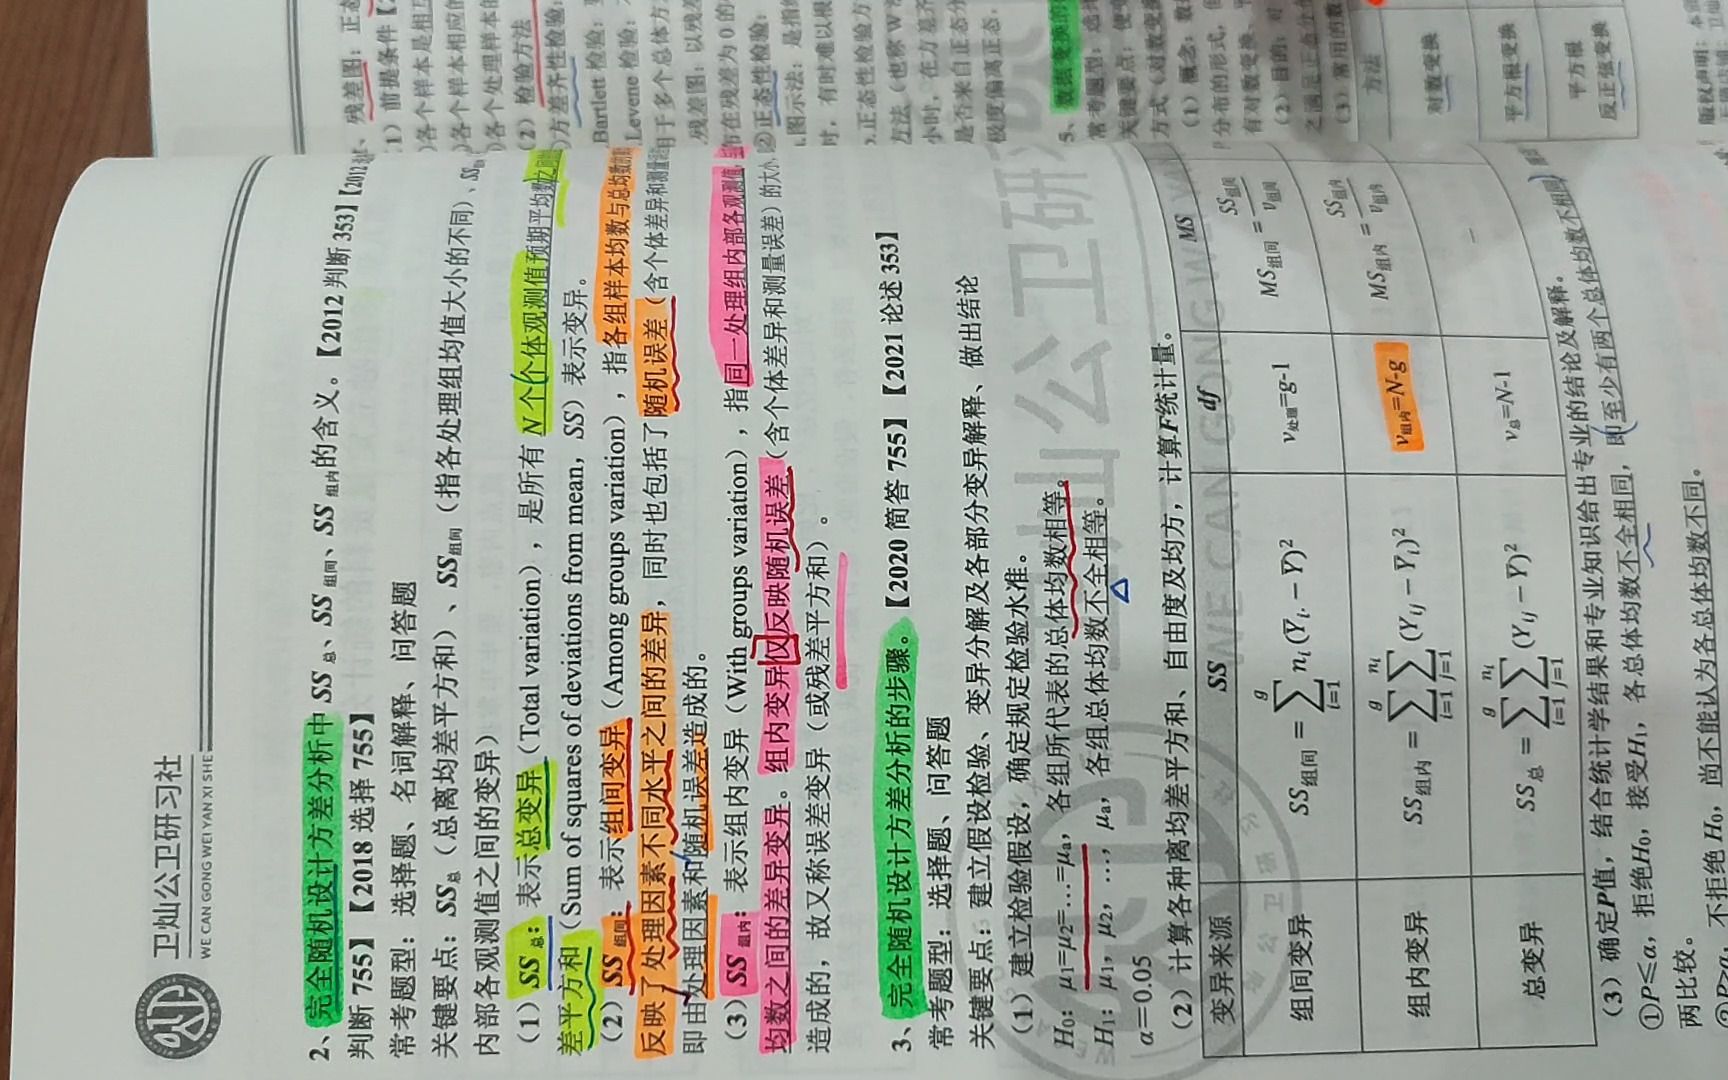 卫灿公卫研习社
WE CAN GONG WEI YAN XI SHE
2、完全随机设计方差分析中 SS总、SS组间、SS组内的含义。【2012 判断 353】【2012
判断 755】【2018 选择 755】
常考题型：选择题、名词解释、问答题
关键要点：SS总（总离均差平方和）、SS组间（指各处理组均值大小的不同）、SS
内部各观测值之间的变异）
（1）SS总：表示总变异（Total variation），是所有 N 个个体观测值预期平均数之间
差平方和（Sum of squares of deviations from mean，SS）表示变异。
（2）SS组间：表示组间变异（Among groups variation），指各组样本均数与总均数
反映了处理因素不同水平之间的差异，同时也包括了随机误差（含个体差异和测量
即由处理因素和随机误差造成的。
（3）SS组内：表示组内变异（With groups variation），指同一处理组内部各观测值
均数之间的差异变异。组内变异仅反映随机误差（含个体差异和测量误差）的大小
造成的，故又称误差变异（或残差平方和）。
3、完全随机设计方差分析的步骤。【2020 简答 755】【2021 论述 353】
常考题型：选择题、问答题
关键要点：建立假设检验、变异分解及各部分变异解释、做出结论
（1）建立检验假设，确定规定检验水准。
H₀：μ₁=μ₂=…=μa，各组所代表的总体均数相等。
H₁：μ₁，μ₂，…，μa，各组总体均数不全相等。
α=0.05
（2）计算各种离均差平方和、自由度及均方，计算F统计量。
变异来源 SS df MS
组间变异 SS组间 = ∑_{i=1}^{g} n_i(Ȳ_i. − Ȳ)² ν处理=g-1 MS组间 = SS组间/ν组间
组内变异 SS组内 = ∑_{i=1}^{g} ∑_{j=1}^{n_i} (Y_ij − Ȳ_i)² ν组内=N-g MS组内 = SS组内/ν组内
总变异 SS总 = ∑_{i=1}^{g} ∑_{j=1}^{n_i} (Y_ij − Ȳ)² ν总=N-1 –
（3）确定P值，结合统计学结果和专业知识给出专业的结论及解释。
①P≤α，拒绝H₀，接受H₁，各总体均数不全相同，即至少有两个总体均数不相同
两比较。
②P>α，不拒绝 H₀，尚不能认为各总体均数不同。
残差图：正态
1）前提条件【
)各个样本是相互
)各个样本相应的
)各个处理样本的
(2) 检验方法
)方差齐性检验：
Bartlett 检验：
Levene 检验：
用于多个总体方
残差图：以残差
布在残差为 0 的
②正态性检验：
图示法：是指
时，有时难以根
正态性检验方
方法（也称 W
小时，在方差齐
是否来自正态分
峻度偏离正态，
5、数据变换的
常考题型：选
关键要点：使
方式（对数变换
（1）概念：数
分布的形式，
有对数变换、平
（2）目的：对
（3）常用的数
方法
对数变换
平方根变换
平方根
反正弦变换
版权声明：本